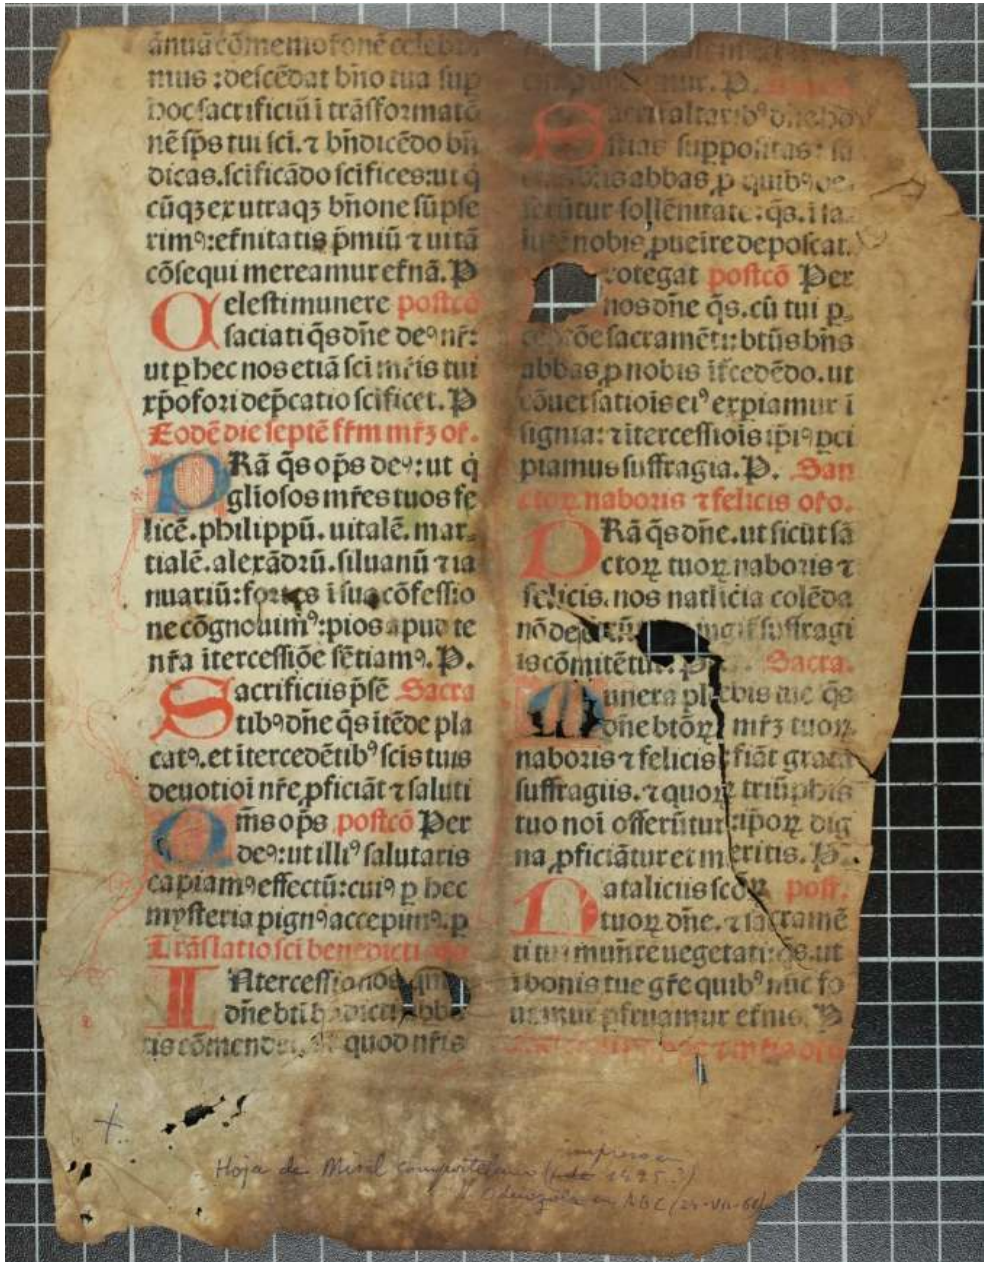 mus : descēdat bńo tua sup
hoc sacrificiū ī trāsformatō
nē sp̄s tui sci. ⁊ bńdicēdo bń
dicas. scificādo scifices: ut q̇
cūqꝫ ex utraqꝫ bńone sūpse
rimꝰ: et̄nitatis p̄miū ⁊ uitā
cōsequi mereamur et̄nā. P
Celesti munere postcō
saciati q̄s dn̄e deꝰ nr̄:
ut ꝑ hec nos etiā sci mr̄is tui
xp̄ofori dep̄catio scificet. P
Eodē die septē fr̄m mr̄ꝫ or̄.
PRā q̄s op̄s deꝰ: ut q̇
gliosos mr̄es tuos fe
licē. philippū. uitalē. mar
tialē. alexādrū. siluanū ⁊ ia
nuariū: fortes ī sua cōfessio
ne cōgnouimꝰ: pios apud te
nr̄a ītercessiōe sētiamꝰ. P.
Sacrificiis p̄sē Sacra
tibꝰ dn̄e q̄s ītēde pla
catꝰ. et ītercedētibꝰ scis tuis
deuotioi nr̄e ꝓficiāt ⁊ saluti
Om̄s op̄s postcō Per
deꝰ: ut illiꝰ salutaris
capiamꝰ effectū: cuiꝰ ꝑ hec
mysteria pignꝰ accepimꝰ. p
Trāslatio sci benedicti
INtercessio nos
dn̄e bti
tis cōmendet quod nr̄is
mur. P.
Sacra altaribꝰ dn̄e ho
stias suppositas: sā
abbas ꝓ quibꝰ de
ferūtur sollēnitate: q̄s. ī sa
lutē nobis ꝓueīre deposcat.
rotegat postcō Per
nos dn̄e q̄s. cū tui ꝑ
ceptōe sacramēti: btūs bńs
abbas ꝓ nobis īt̄cedēdo. ut
cōuersatiōis eiꝰ expiamur ī
signia: ⁊ itercessiōis ip̄iꝰ ꝑci
piamus suffragia. P. San
ctoꝝ naboris ⁊ felicis or̄o.
PRā q̄s dn̄e. ut sicut sā
ctoꝝ tuoꝝ naboris ⁊
felicis. nos natlicia colēda
nō suffragi
is cōmitētur. Sacra.
Munera plebis tue q̄s
dn̄e btōꝝ mr̄ꝫ tuoꝝ
naboris ⁊ felicis fiāt grata
suffragiis. ⁊ quoꝝ triūphis
tuo noī offerūtur: ip̄oꝝ dig
na ꝓficiātur et meritis. P.
Nataliciis scōꝝ post.
tuoꝝ dn̄e. ⁊ sacramē
ti tui mun̄re uegetati: q̄s. ut
ī bonis tue gr̄e quibꝰ nūc fo
uemur ꝑfruamur et̄nis. P
+
Hoja de Misal compostelano (impreso en 1495?)
Odriozola en ABC (24-VII-68)